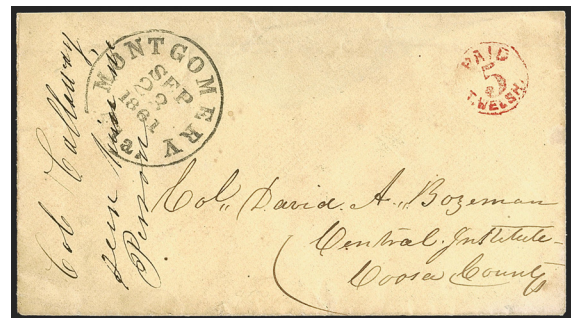 MONTGOMERY Ala
SEP
22
1861
PAID
5
T. WELSH.
Col Calloway
seen
Person
Col,, David. A,, Bozeman
Central. Institute-
Coosa County